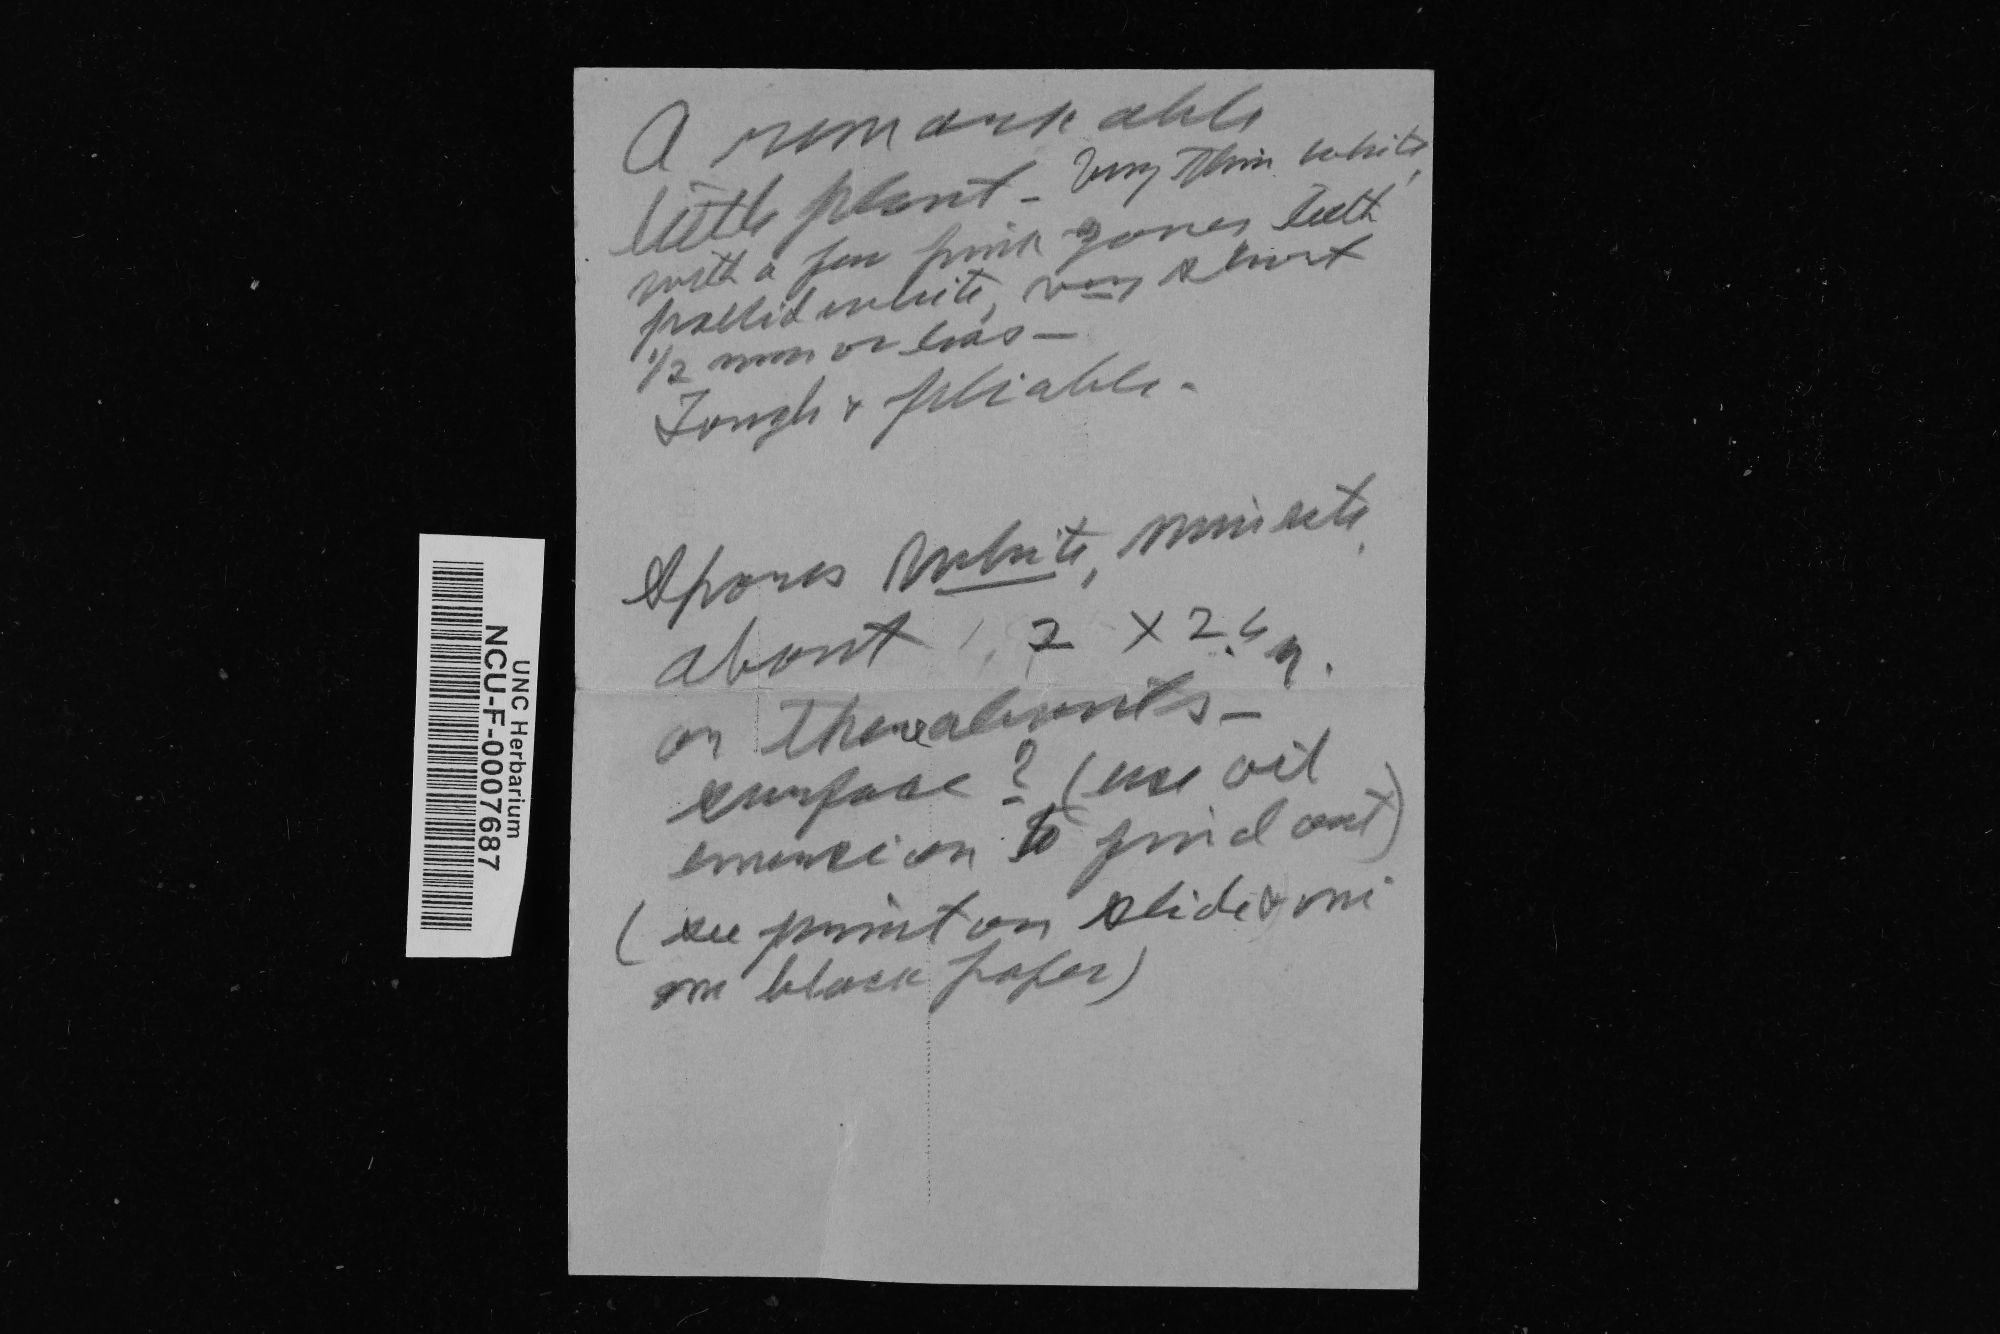 A remarkable
little plant - Very thin white,
with a few pink zones teeth
pallid white, very short
1/2 mm or less -
Tough & pliable -
Spores white, minute,
about 2 X 2.
or thereabouts -
surface ? (use oil
emersion to find out)
(see print on slide & one
on black paper)
UNC Herbarium
NCU-F-0007687